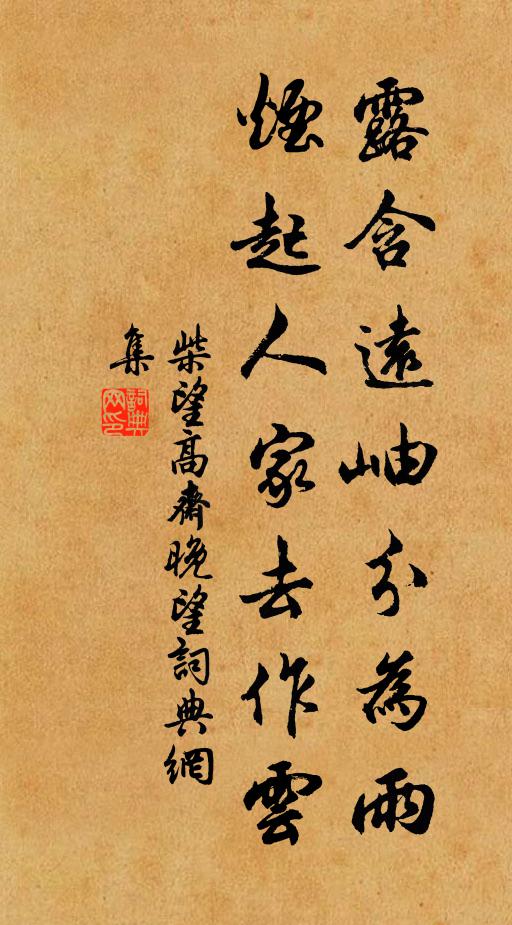 露含遠岫分為雨
煙起人家去作雲
柴望高齋晚望詞典網
集
詞典
网印